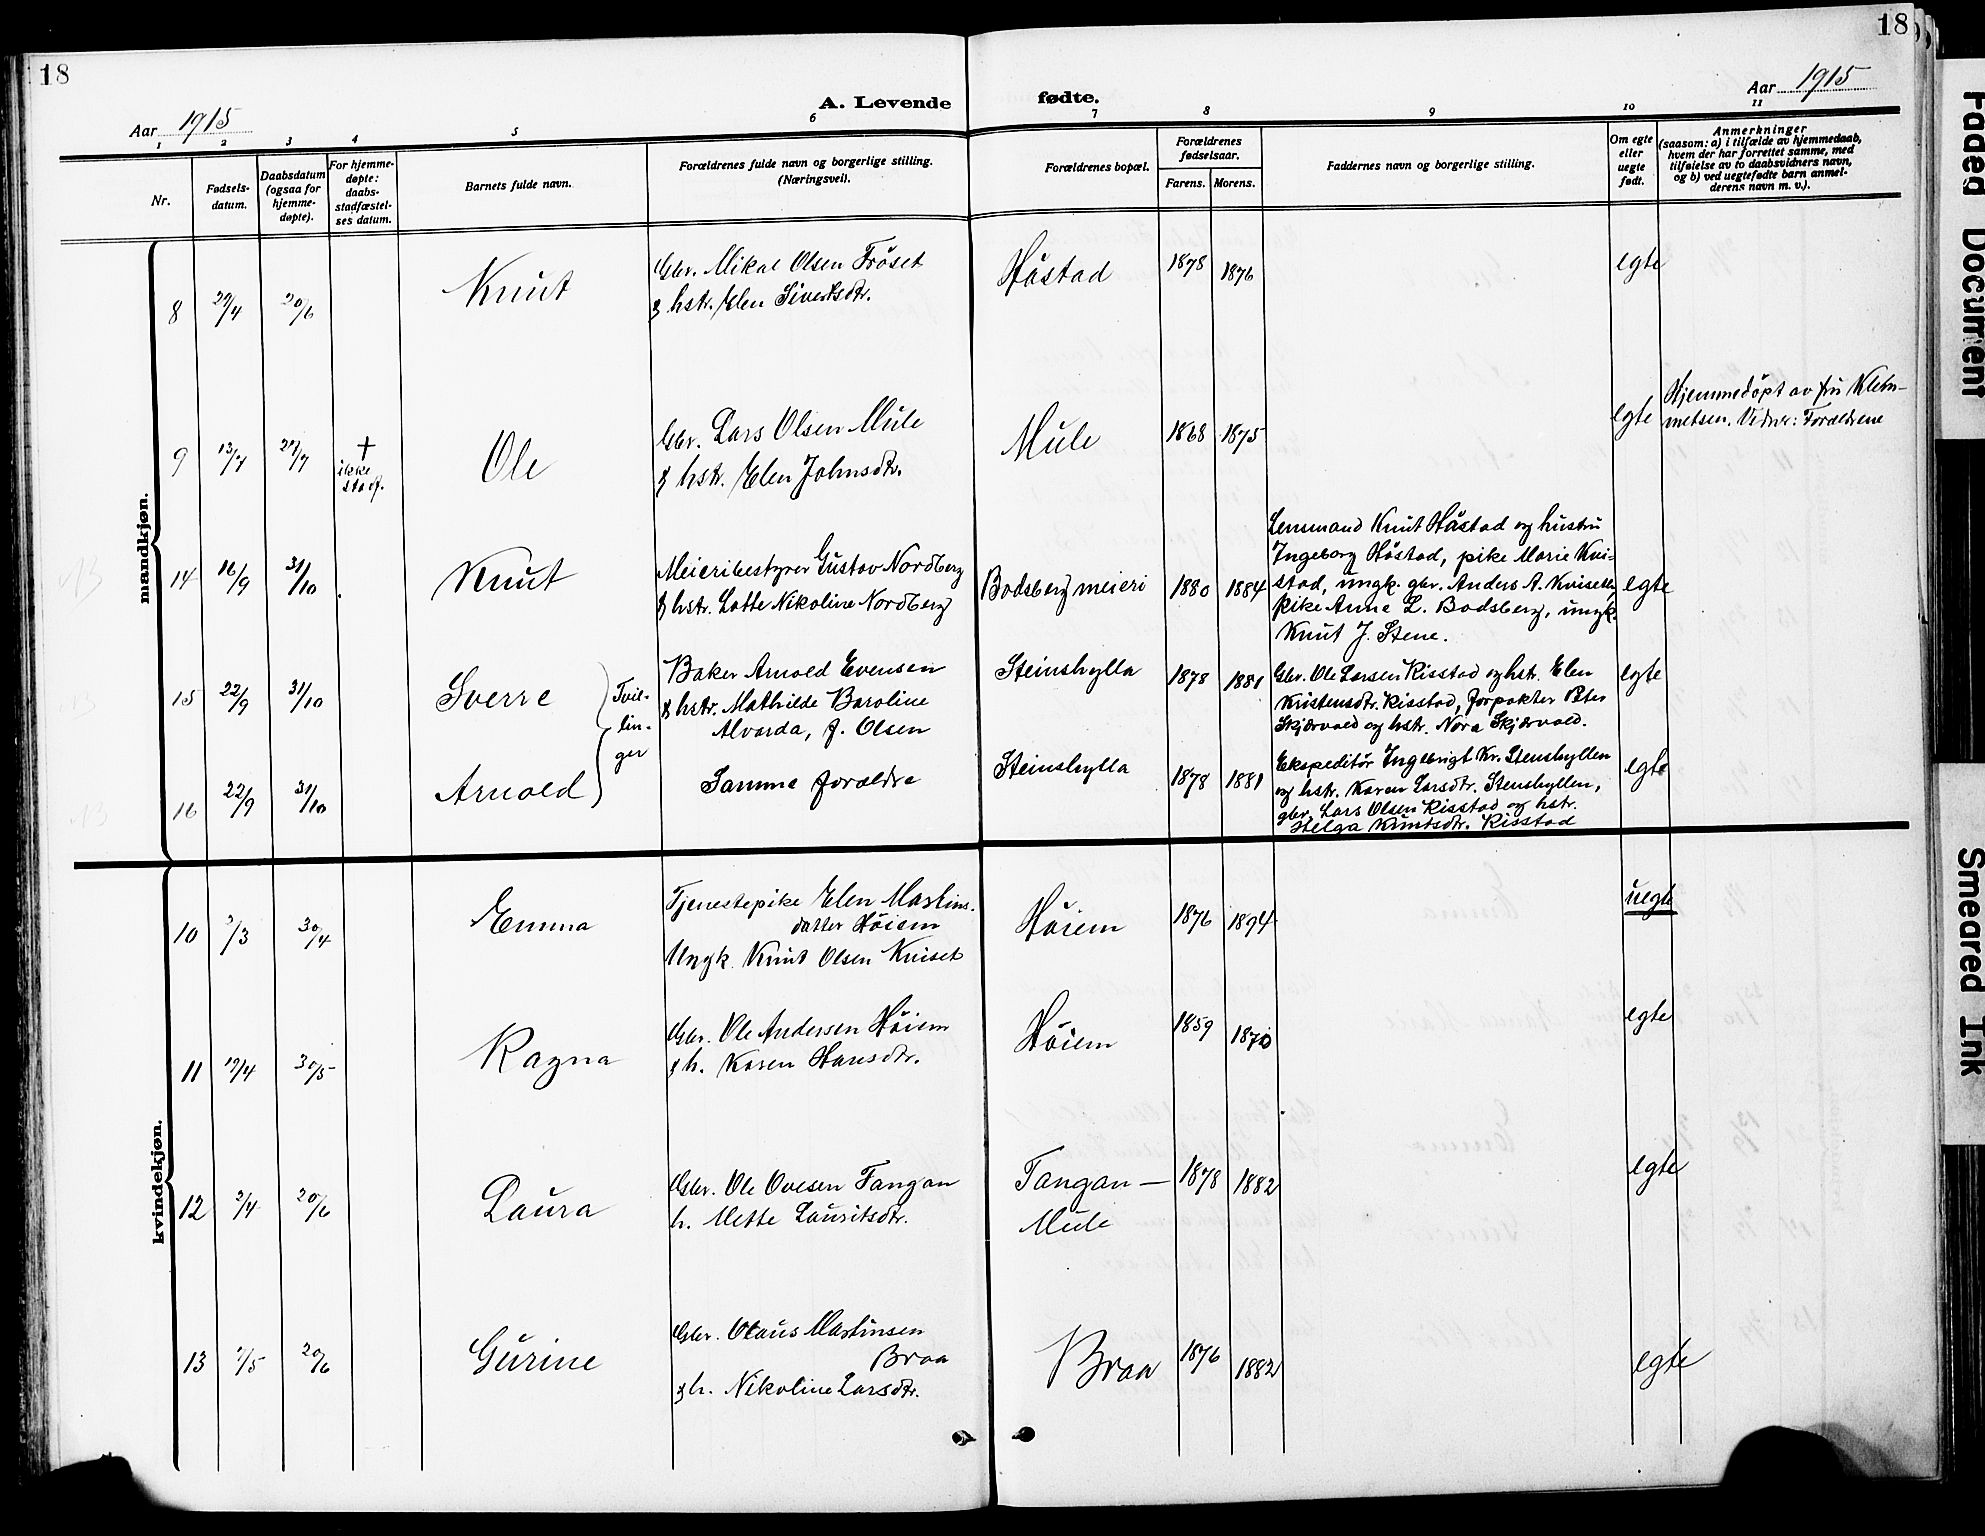 18
18
Aar 1915
A. Levende
fødte.
Aar 1915
1
2
3
4
5
6
7
8
9
10
11
Nr.
Fødsels-
datum.
Daabsdatum
(ogsaa for
hjemme-
døpte).
For hjemme-
døpte:
daabs-
stadfæstel-
ses datum.
Barnets fulde navn.
Forældrenes fulde navn og borgerlige stilling.
(Næringsvei).
Forældrenes bopæl.
Forældrenes
fødselsaar.
Farens. Morens.
Faddernes navn og borgerlige stilling.
Om egte
eller
uegte
født.
Anmerkninger
(saasom: a) i tilfælde av hjemmedaab,
hvem der har forrettet samme, med
tilføielse av to daabsvidners navn,
og b) ved uegtefødte barn anmel-
derens navn m. v.).
mandkjøn.
8 29/4 20/6 Knut
Gbr. Mikal Olsen Fröset
& hstr. Elen Sivertsdtr.
Håstad 1878 1876 egte
9 13/7 27/7 +
ikke
stadf.
Ole
Gbr. Lars Olsen Mule
& hstr. Elen Johnsdtr.
Mule 1868 1875 egte
Hjemmedöpt av fru Klem-
metsen. Vidner: Forældrene
14 16/9 31/10 Knut
Meieribestyrer Gustav Nordberg
& hstr. Lotte Nikoline Nordberg
Bodsberg meieri 1880 1884
Lensmand Knut Håstad og hustru
Ingeborg Håstad, pike Marie Kvi-
stad, ungk. gbr. Anders A. Kviset
pike Anne L. Bodsberg, ungk.
Knut J. Stene.
egte
15 22/9 31/10 Sverre
Tvil-
lin-
ger
Baker Arnold Evensen
& hstr. Mathilde Baroline
Alvarda, f. Olsen
Steinshylla 1878 1881
Gbr. Ole Larsen Risstad og hstr. Elen
Kristensdtr. Risstad, forpakter Peter
Skjærvold og hstr. Nora Skjærvold.
egte
16 22/9 31/10 Arnold
Samme forældre
Steinshylla 1878 1881
Ekspeditör Ingebrigt Kr. Stenshyllen
og hstr. Karen Larsdtr. Stenshyllen,
gbr. Lars Olsen Risstad og hstr.
Helga Knutsdtr. Risstad
egte
kvindekjøn.
10 /3 30/4 Emma
Tjenestepike Elen Martins-
datter Höiem
Ungk. Knut Olsen Kviset
Höiem 1876 1894 uegte
11 17/4 30/5 Ragna
Gbr. Ole Andersen Höiem
& h. Karen Hansdtr.
Höiem 1859 1870 egte
12 2/4 20/6 Laura
Gbr. Ole Ovesen Tangan
h. Mette Lauritsdtr.
Tangan —
Mule
1878 1882 egte
13 /5 20/6 Gurine
Gbr. Olaus Martinsen
Braa
& h. Nikoline Larsdtr.
Braa 1876 1882 egte
Faded Document
Smeared Ink